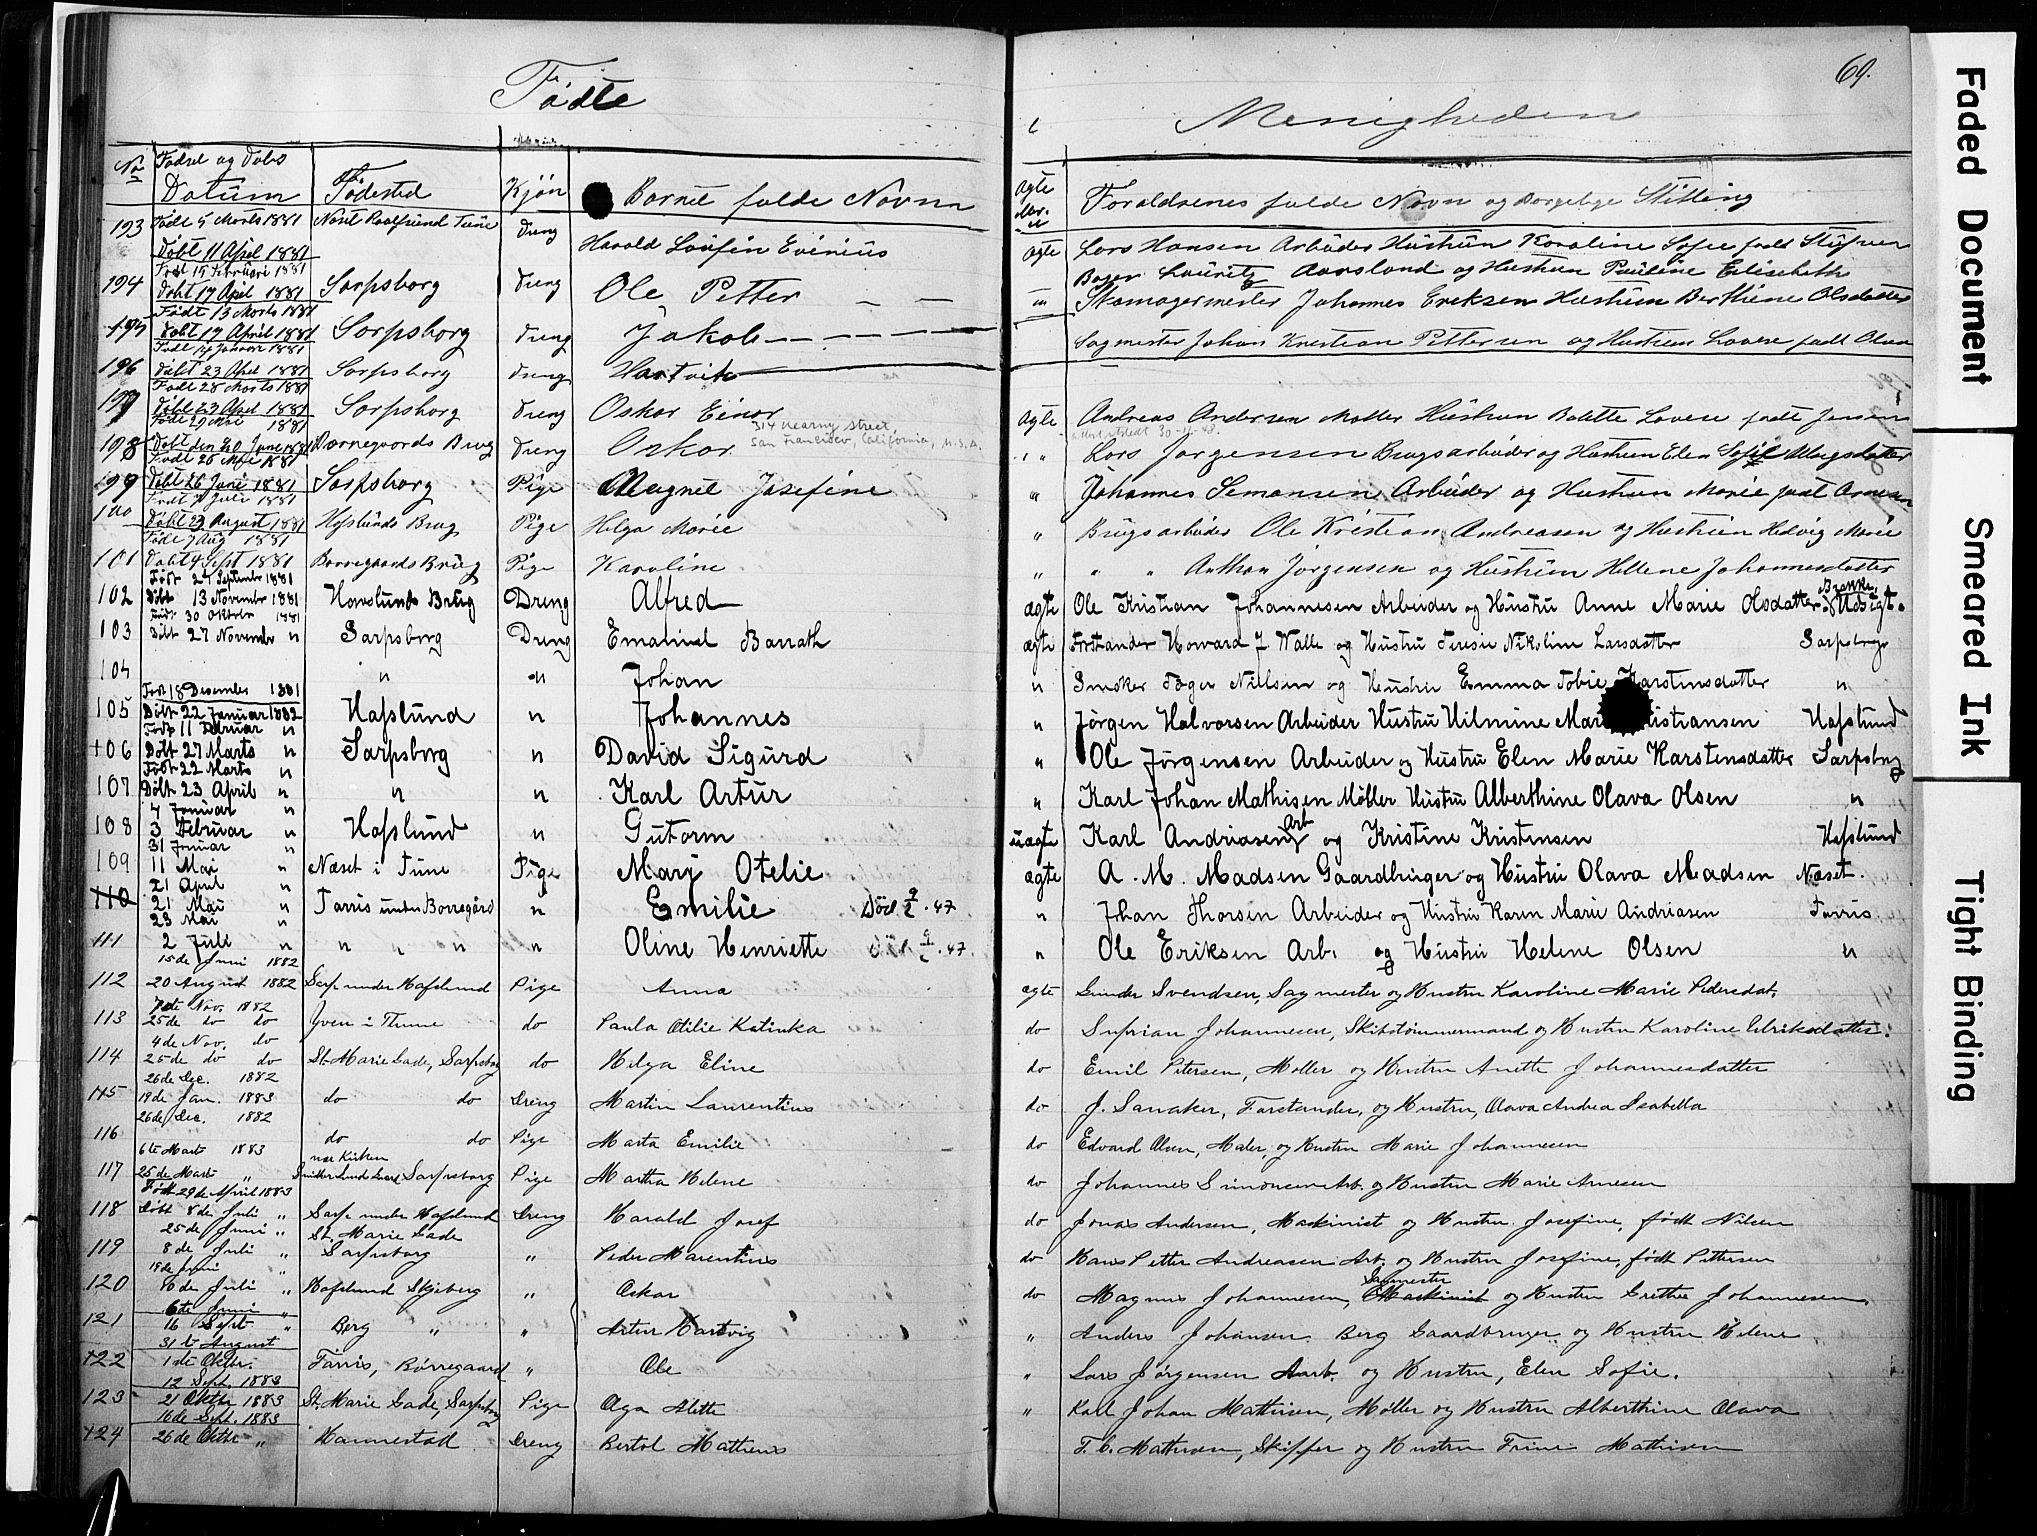 Fødte
69.
i Menigheden
No Fødsel og Døbs Datum Fødested Kjøn Barnet fulde Navn
Ægte eller u Foraldrenes fulde Navn og Borgelige Stilling
193 Født 5 Marts 1881 Døbt 11 April 1881 Næset Tune Dreng Harald
Ægte Lars Hansen Arbeider Hustrun Karoline Sofie født
Lauritz Aarsland og Hustrun Pauline Elisebeth
194 Født 15 Februari 1881 Døbt 17 April 1881 Sarpsborg Dreng Ole Petter — —
Skomagermester Johannes Eriksen Hustrun Berthine Olsdatter
195 Født 13 Marts 1881 Døbt 17 April 1881 Sarpsborg Dreng Jakob — — — —
Sagmester Johan Kristian Pettersen og Hustrun Lovise født Olava
196 Født 14 Januar 1881 Døbt 23 April 1881 Sarpsborg Dreng Hartvik
197 Født 28 Marts 1881 Døbt 23 April 1881 Sarpsborg Dreng Oskar Einar
Ægte Andreas Andersen Møller Hustrun Lovise født Jensen
314 Kearny Street,
San Francisco, California, U.S.A.
Attest utstedt 30-11-48.
198 Født 29 Mai 1881 Døbt den 20 Juni 1881 Borregaards Brug Dreng Oskar
" Lars Jørgensen Brugsarbeider og Hustrun Elen Sofie
199 Født 26 Mai 1881 Døbt 26 Juni 1881 Sarpsborg Pige Magnil Josefine
" Johannes Semonsen Arbeider og Hustrun Marie født Arnesen
100 Født Juli 1881 Døbt 29 August 1881 Hafslunds Brug Pige Helga Marie
" Brugsarbeider Ole Kristian Andreasen og Hustrun Hedvig Marie
101 Født 7 Aug 1881 Døbt 4 Sept 1881 Borregaards Brug Pige Karoline
" " " Anthon Jørgensen og Hustrun Hellene Johannesdatter
102 Født 27 September 1881 Døbt 13 November 1881 Havslund Brug Dreng Alfred
ægte Ole Kristian Johannesen Arbeider og Hustru Anne Marie Olsdatter Udsigt.
103 Født 30 Oktober 1881 Døbt 27 November " Sarpsborg Dreng Emanuel Barrath
ægte Forstander Howard J Walle og Hustru Teresie Nikoline Larsdatter Sarpsborg
104 " " Johan
" Smeker Tøger Nillsen og Hustru Emma Tobie Karstensdatter "
105 Født 18 Desember 1881 Døbt 22 Januar 1882 Hafslund " Johannes
" Jørgen Halvorsen Arbeider Hustru Hilmine Mari Kristiansen Hafslund
106 Født 11 Februar " Døbt 27 Marts " Sarpsborg " David Sigurd
" Ole Jørgensen Arbeider og Hustru Elen Marie Karstensdatter Sarpsborg
107 Født 22 Marts " Døbt 23 April " " " Karl Artur
" Karl Johan Mathisen Møller Hustru Alberthine Olava Olsen "
108 4 Januar 3 Februar " Hafslund " Gutorm
uægte Karl Andriasen Arb og Kristine Kristensen Hafslund
109 31 Januar " 11 Mai " Næset i Tune Pige Mary Otelie
ægte A. M. Madsen Gaardbruger og Hustru Olava Madsen Næset.
110 21 April " 21 Mai " Tarris under Borregård " Emilie Død 9/2. 47
" Johan Thorsen Arbeider og Hustru Karen Marie Andriasen Tarris
111 23 Mai " 2 Juli " " " " " Oline Henriette Død 9/2. 47.
" Ole Eriksen Arb. og Hustru Helene Olsen "
112 15de Juni 1882 20 August 1882 Sarp under Hafslund Pige Anna
ægte Gunder Svendsen, Sagmester og Hustru Karoline Marie Pedersdat.
113 7de Nov. 1882 25de do do Yven i Thune do Paula Otilie Katinka
do Syprian Johannesen, Skibstømmermand og Hustru Karoline Edriksdatter.
114 4de Nov. do 25de do do St. Marie Gade, Sarpsborg do Helga Eline
do Emil Petersen, Møller og Hustru Anette Johannesdatter
115 26de Dec. 1882 19de Jan. 1883 do do Dreng Martin Laurentius
do J. Sanaker, Forstander, og Hustru, Olava Andrea Isabella
116 26de Dec. 1882 do do Pige Marta Emilie
do Edvard Olsen, Maler, og Hustru Marie Johannesen
117 6te Marts 1883 25de Marts " nær Kirken Sarpsborg Pige Martha Helene
do Johannes Simonsen Arb. og Hustru Marie Arnesen
118 Født 29de April 1883 Døbt 8de Juli " Sarp under Hafslund Dreng Harald Josef
do Jonas Andersen, Maskinist og Hustru Josefine, født Nilsen
119 25de Juni " 8de Juli " St. Marie Gade Sarpsborg " Peder Marentius
do Hans Petter Andreasen Arb. og Hustru Josefine, født Pettersen
120 19de Juni " 8de Juli " Hafslund Skjeberg " Oskar
do Magnus Johannesen, Maskinist Sagmester og Hustru Grethe Johannesen.
121 6te Juni " 16 Sept " Berg " " Artur Hartvig
" Anders Johansen Berg Gaardbruger og Hustru Helene
122 31te August 1de Oktbr. Tarris, Borregaard " Ole
" Lars Jørgensen Arb. og Hustru, Elen Sofie.
123 12 Sept. 1883 21 Oktbr 1883 St. Marie Gade, Sarpsborg Pige Aga Alette
" Karl Johan Mathisen, Møller og Hustru Alberthine Olava
124 16de Sept. 1883 26de Oktbr " Hannestad Dreng Bertol Matheus
T. C. Mathisen, Skipper og Hustru Trine Mathisen
Faded Document
Smeared Ink
Tight Binding